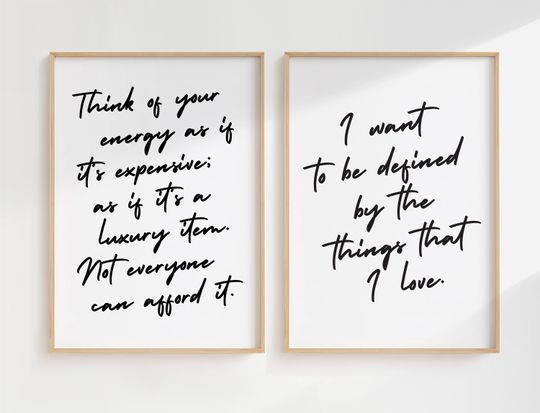 Think of your
energy as if
it's expensive;
as if it's a
luxury item.
Not everyone
can afford it.
I want
to be defined
by the
things that
I love.